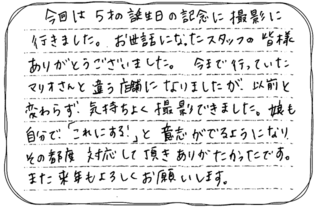 今回は5才の誕生日の記念に撮影に
行きました。お世話になったスタッフの皆様
ありがとうございました。今まで行っていた
マリオさんと違う店舗になりましたが、以前と
変わらず気持ちよく撮影できました。娘も
自分で「これにする!」と意志がでるようになり
その都度対応して頂きありがたかったです。
また来年もよろしくお願いします。